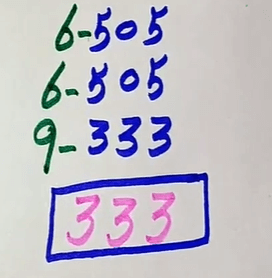 6-505
6-505
9-333
333